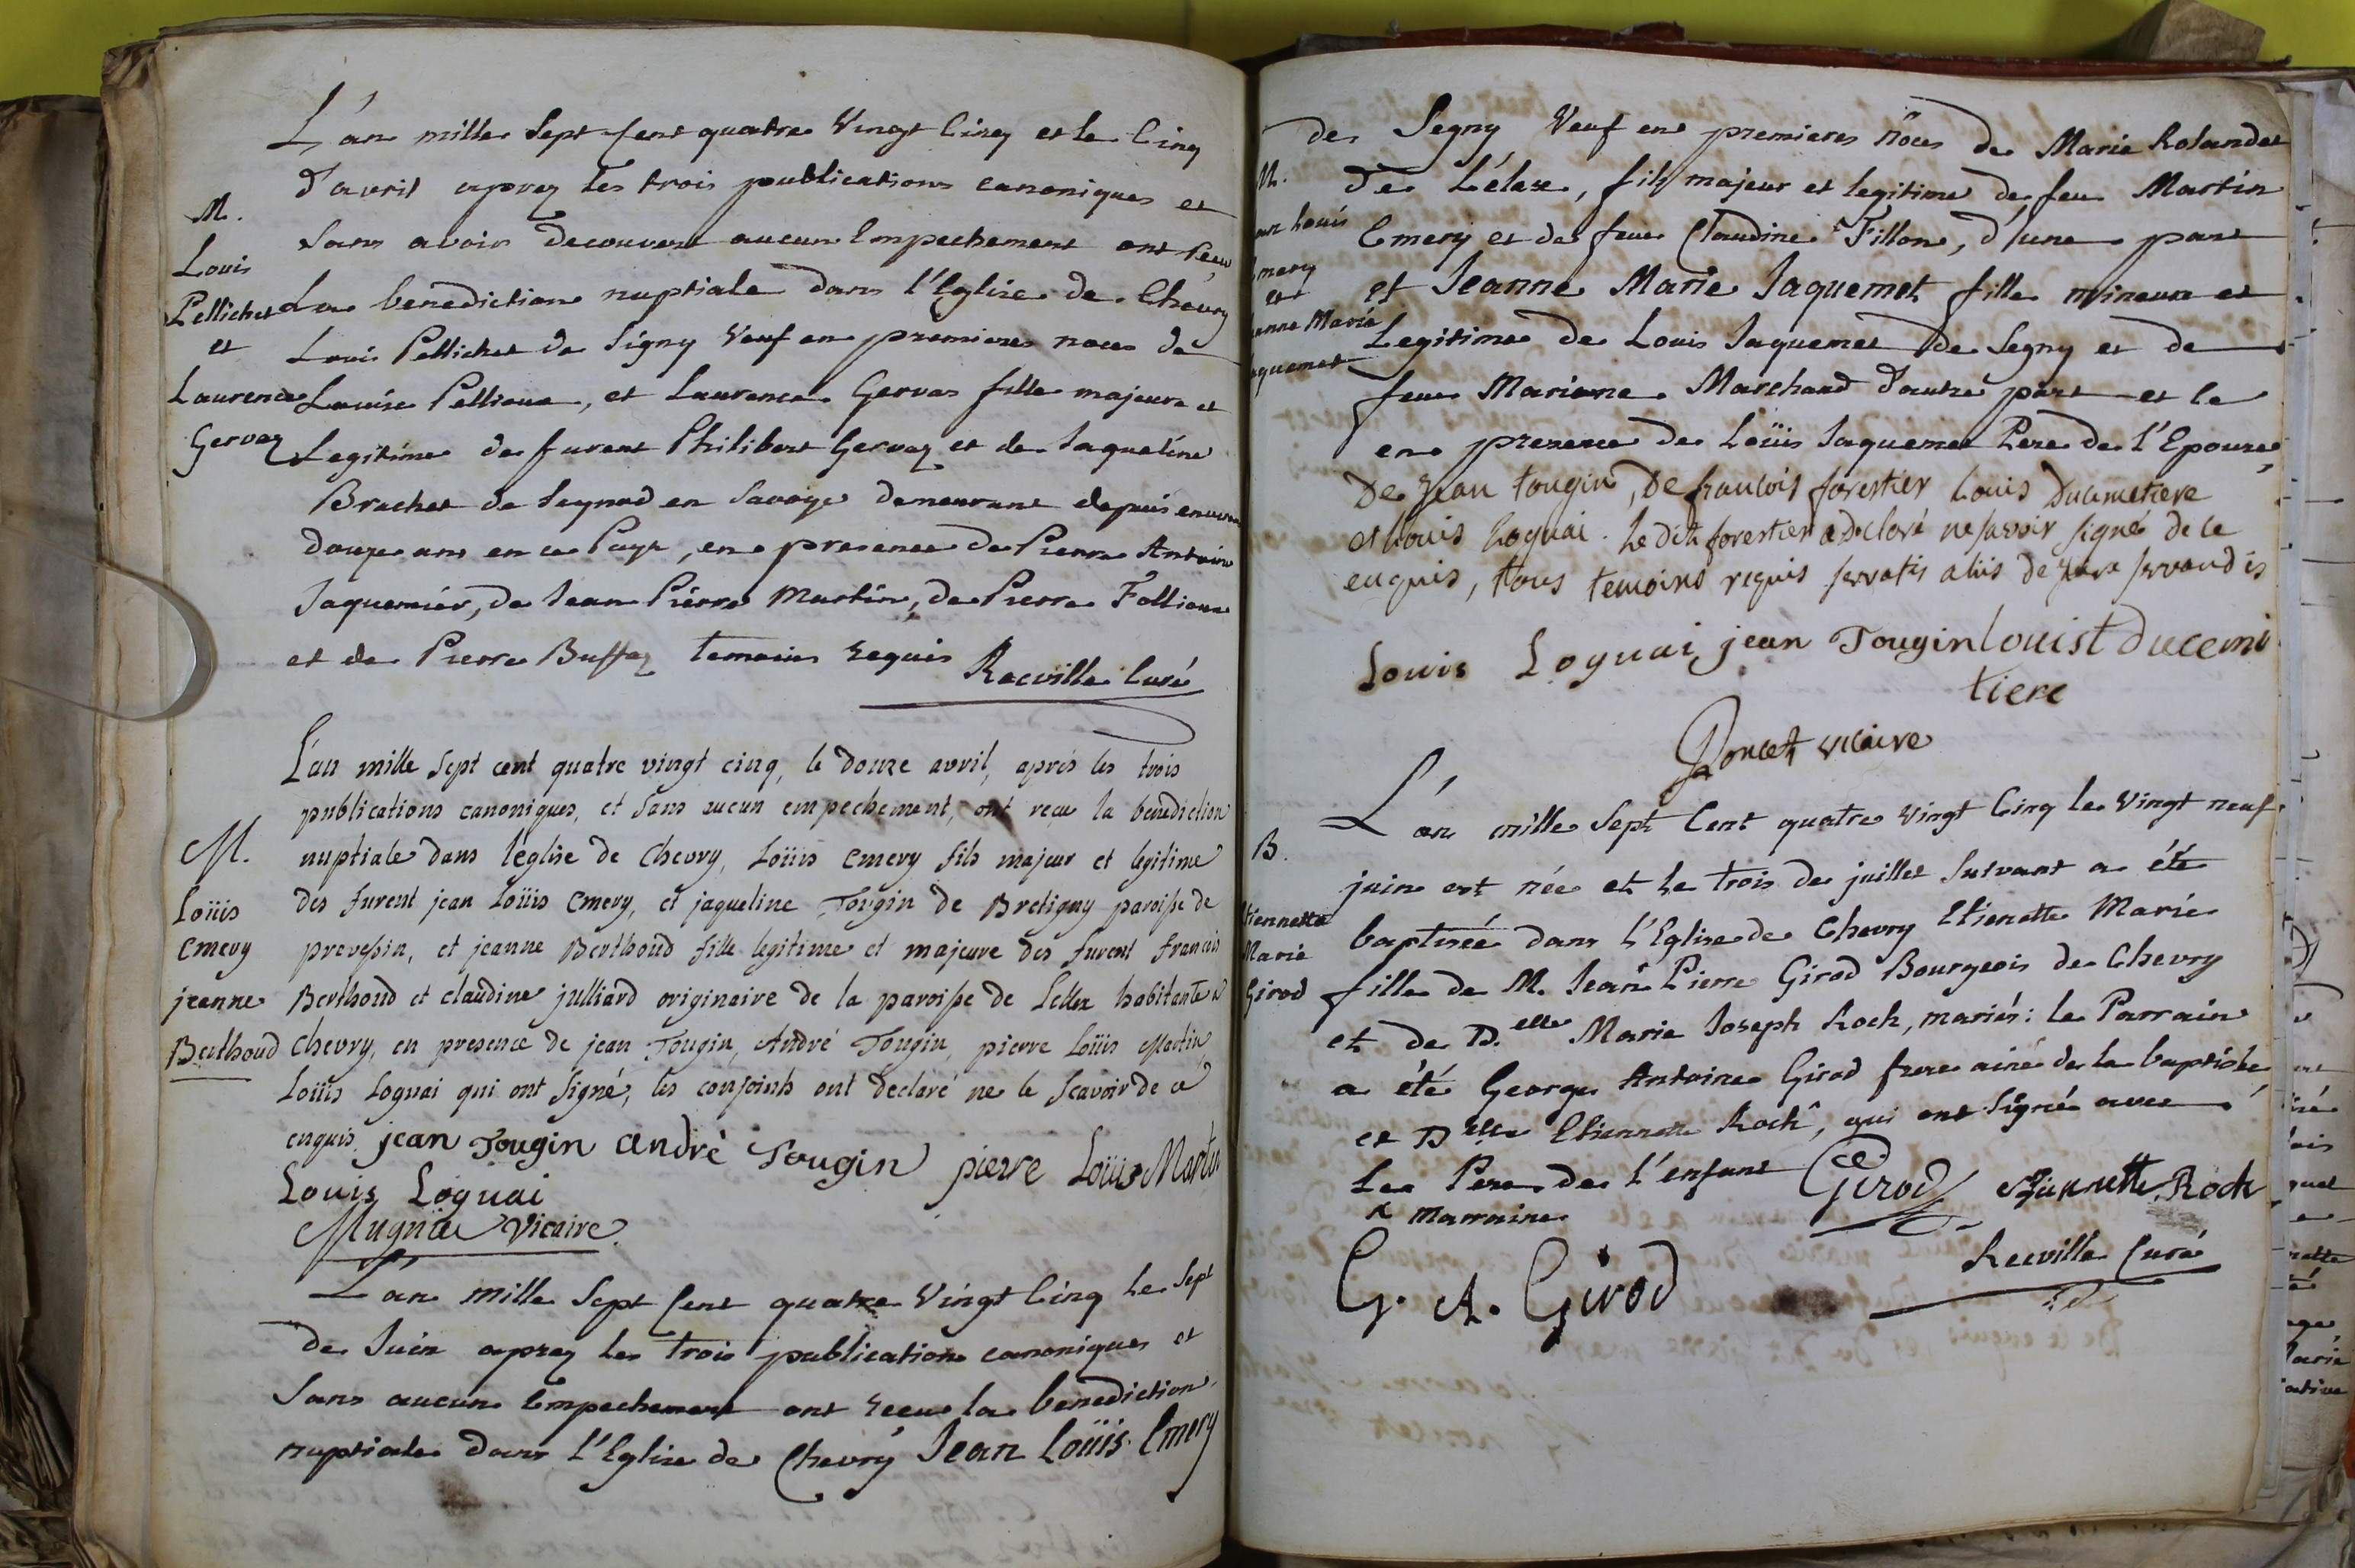 L'an mille Sept Cent quatre Vingt Cinq et le Cinq
M.
d'avril aprez les trois publications canoniques et
Louis
Sans avoir decouvert aucun Empechement ont Recu
Pellichet
La benediction nuptiale dans l'Eglise de Chevry
et
Louis Pellichet de Signy Veuf en premieres noces de
Laurence
Louise Pellioux, et Laurence Gervas fille majeure et
Gervaz
Legitime de furent Philibert Gervaz et de Jaqueline
Brachet de Seynod en Savoye demeurant depuis environ
douze ans en ce Payx, en presence de Pierre Antoine
Jaquemier, de Jean Pierre Martin, de Pierre Follioux
et de Pierre Buffaz temoins requis Recville Curé
L'an mille sept cent quatre vingt cinq, le douze avril, après les trois
publications canoniques, et sans aucun empechement, ont reçu la benediction
M.
nuptiale dans leglise de Chevry, Loüis Emery fils majeur et legitime
Loüis
des furent jean Loüis Emery, et jaqueline Tougin de Bretigny paroisse de
Emery
prevessin, et jeanne Berthoud fille legitime et majeure des furent francois
jeanne
Berthoud et claudine julliard originaire de la paroisse de Lellex habitante a
Berthoud
Chevry, en presence de jean Tougin, André Tougin, pierre Loüis Martin,
Loüis Loguai qui ont signé, les conjoints ont declaré ne le scavoir de ce
enquis. jean Tougin andré Tougin pierre Loüis Martin
Louis Loguai
Mugnier Vicaire
L'an mille Sept Cent quatre Vingt Cinq le Sept
de Juin aprez les trois publications canoniques et
Sans aucun Empechement ont reçu la benediction
nuptiale dans l'Eglise de Chevry Jean Loüis Emery
de Segny Veuf en premieres nôces de Marie Rolandet
M.
de Lélex, fils majeur et legitime de feu Martin
Jean Louis
Emery et de feue Claudine Fillon, d'une part
Emery
et
et Jeanne Marie Jaquemet fille mineure et
Jeanne Marie
Legitime de Louis Jaquemet de Segny et de
Jaquemet
feue Mariane Marchand d'autre part et ce
en presence de Loüis Jaquemet Pere de l'Epouse,
De Jean tougin, De francois forestier Louis Ducimetiere
et Louis Loguai. Le dit forestier a déclaré ne savoir signé de ce
enquis, tous temoins requis servatis aliis de jure servandis
Louis Loguai jean Tougin louist ducemi
tiere
Poncet vicaire
L'an mille Sept Cent quatre Vingt Cinq le Vingt neuf
B.
juin est née et le trois de juillet Suivant a été
Etiennette
baptisée dans l'Eglise de Chevry Etienette Marie
Marie
fille de M. Jean Pierre Girod Bourgeois de Chevry
Girod
et de D.elle Marie Joseph Roch, mariés: le Parrain
a été George Antoine Girod frere ainé de la baptisée
et Delle Etiennette Roch, qui ont Signé avec
Le Pere de l'enfant Girod Etiennette Roch
& marraine
Recville Curé
G. A. Girod